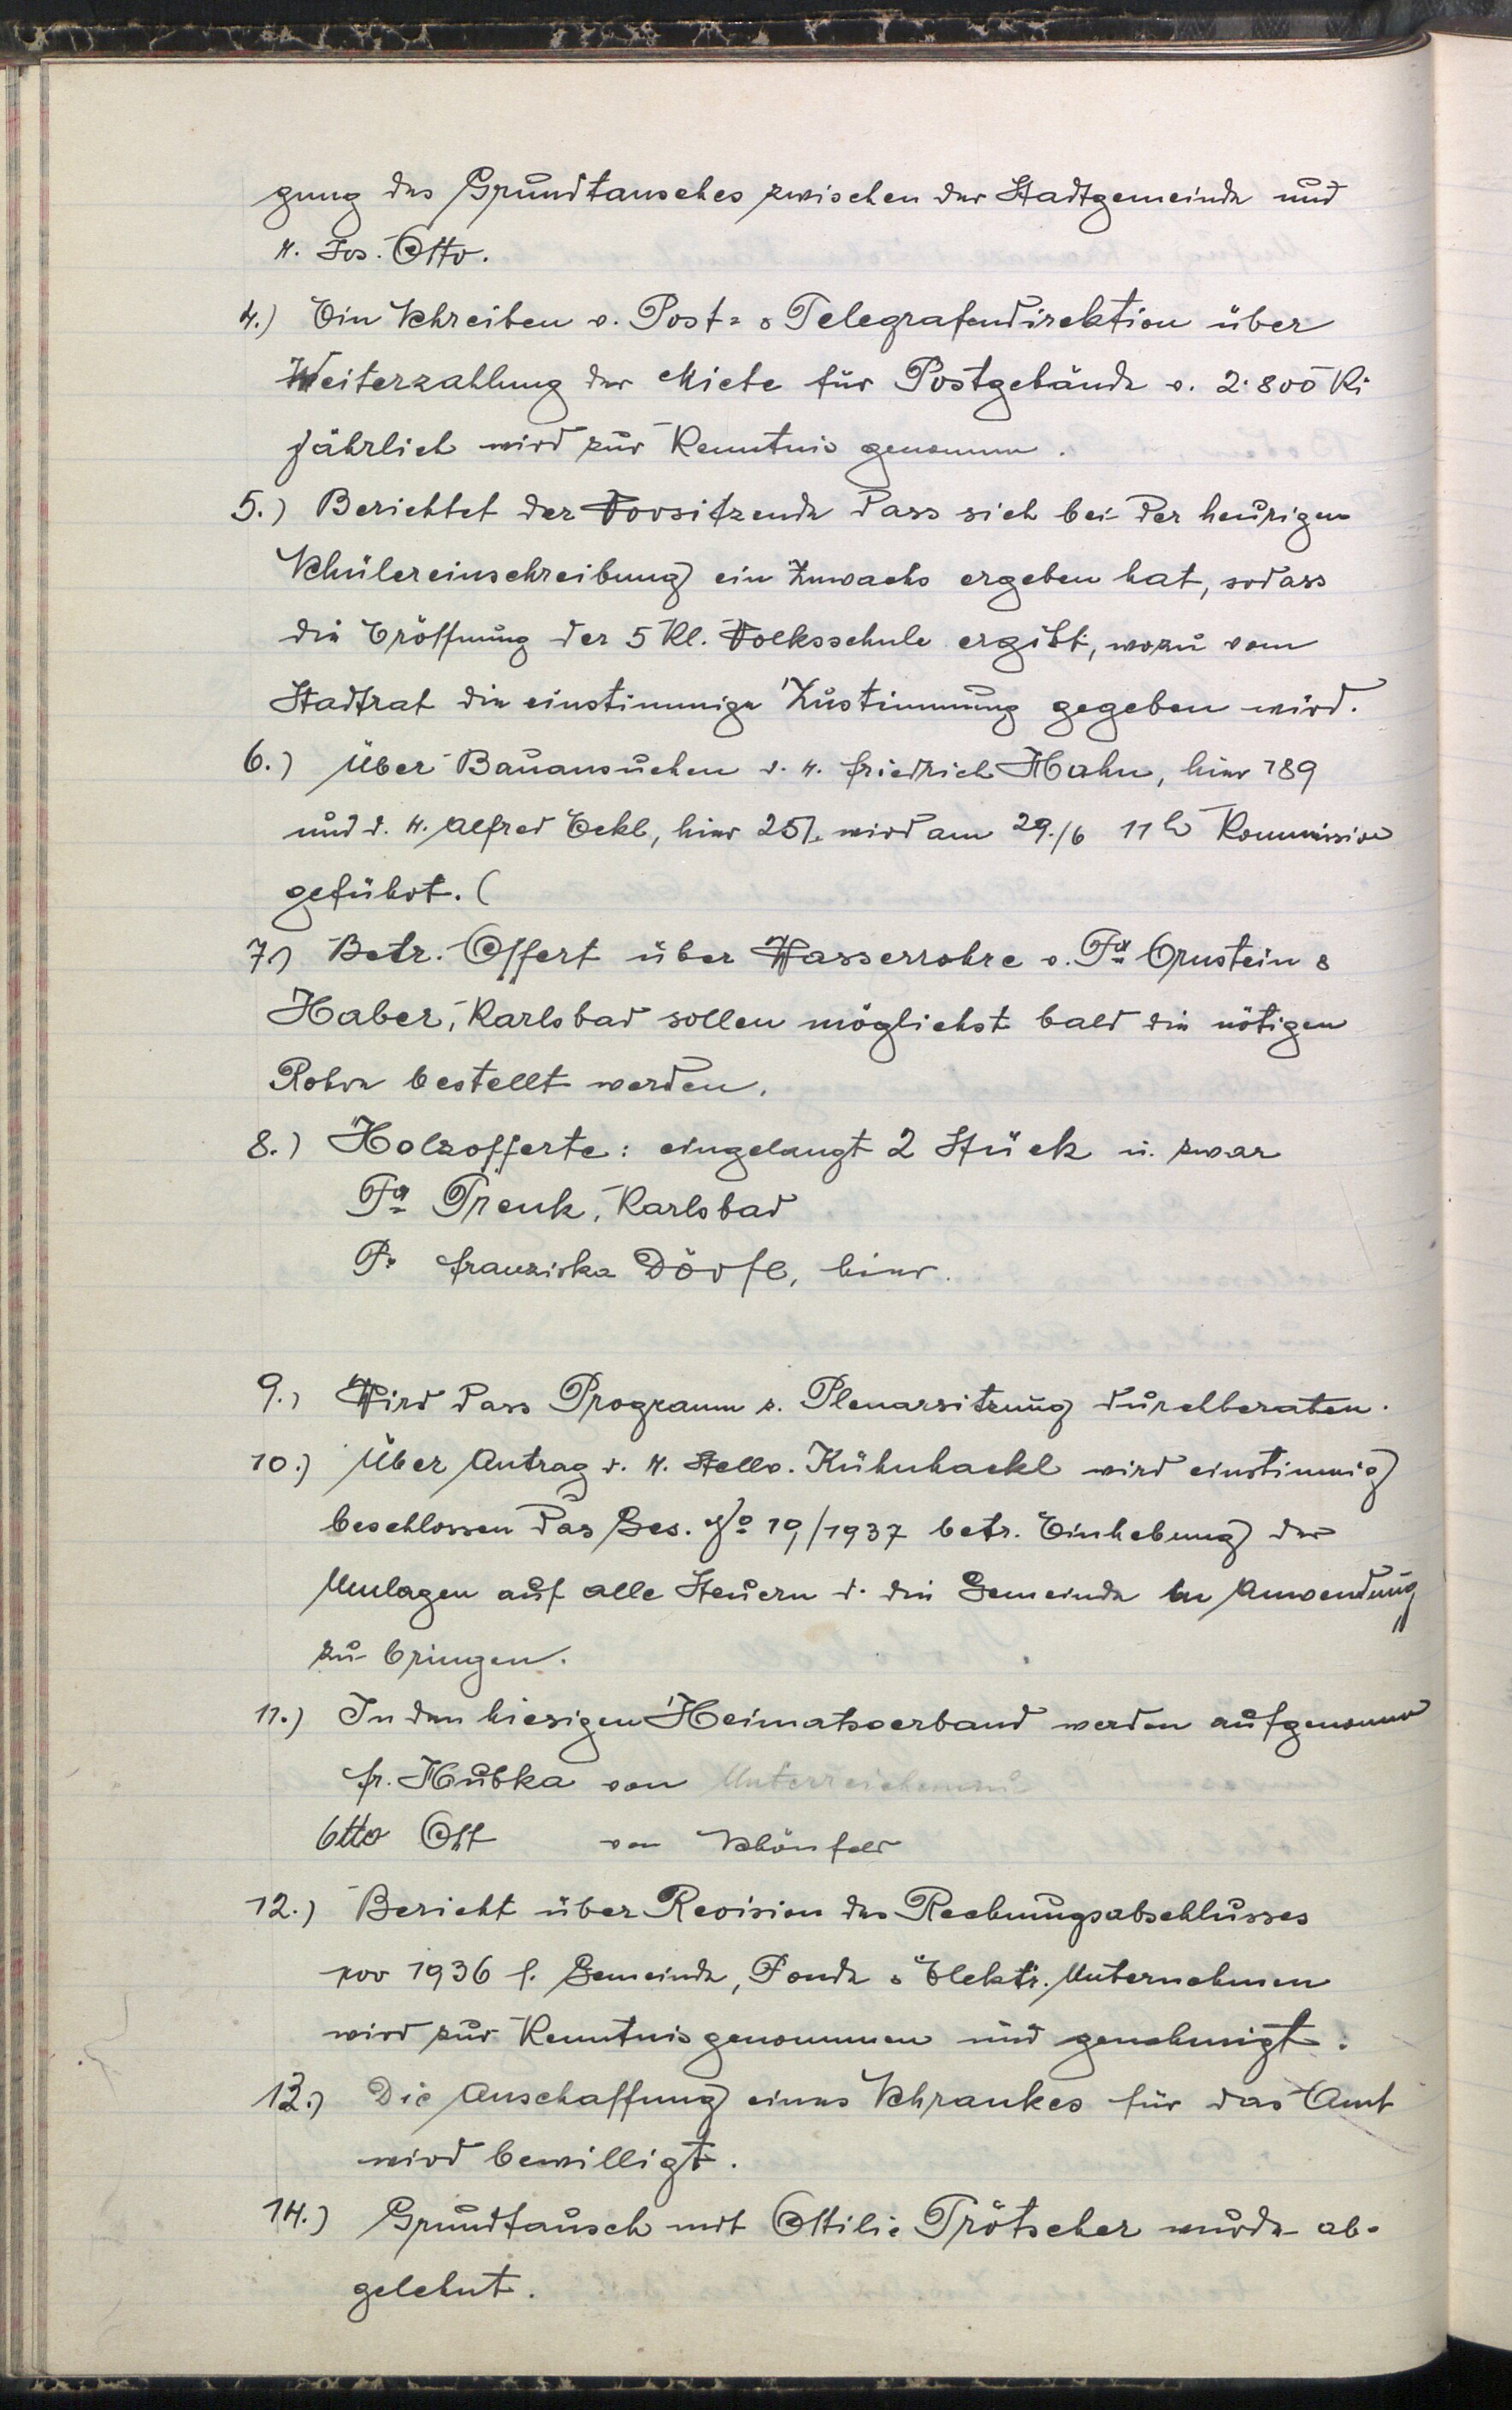 gung des Grundtausches zwischen der Stadtgemeinde und
H. Jos. Otto.
4.) Ein Schreiben v. Post= & Telegrafendirektion über
Weiterzahlung der Miete für Postgebäude v. 2.800 Kč
jährlich wird zur Kenntnis genommen.
5.) Berichtet der Vorsitzende dass sich bei der heurigen
Schülereinschreibung ein Zuwachs ergeben hat, sodass
die Eröffnung der 5 Kl. Volksschule ergibt, wozu vom
Stadtrat die einstimmige Zustimmung gegeben wird.
6.) Über Bauansuchen d. H. Friedrich Hahn, hier 789
und d. H. Alfred Eckl, hier 251. wird am 29./6 11h Kommission
geführt. (
7.) Betr. Offert über Wasserrohre v. Fa Ornstein &
Haber, Karlsbad sollen möglichst bald die nötigen
Rohre bestellt werden.
8.) Holzofferte: eingelangt 2 Stück u. zwar
Fa Trenk, Karlsbad
Fr Franziska Dörfl, hier.
9.) Wird dass Programm z. Plenarsitzung durchberaten.
10.) Über Antrag d. H. Stellv. Kühnhackl wird einstimmig
beschlossen das Ges. No 10/1937 betr. Einhebung der
Umlagen auf alle Steuern d. die Gemeinde in Anwendung
zu bringen.
11.) In den hiesigen Heimatsverband werden aufgenommen
Fr. Hubka von Unterreichenau
Otto Ott von Schönfeld
12.) Bericht über Revision des Rechnungsabschlusses
pro 1936 f. Gemeinde, Fonde & Elektr. Unternehmen
wird zur Kenntnis genommen und genehmigt.
13.) Die Anschaffung eines Schrankes für das Amt
wird bewilligt.
14.) Grundtausch mit Ottilie Trötscher wurde ab-
gelehnt.